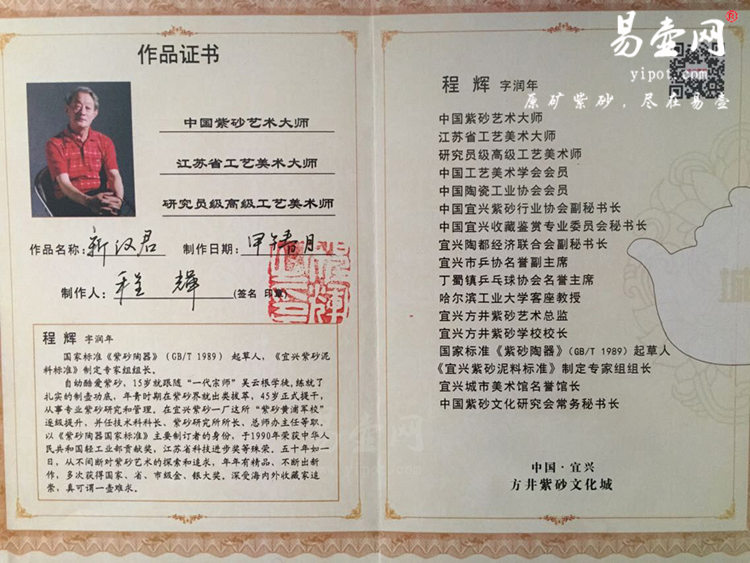 作品证书
中国紫砂艺术大师
江苏省工艺美术大师
研究员级高级工艺美术师
作品名称: 新汉君 制作日期: 甲午春月
制作人: 程辉 (签名 印章)
程 辉 字润年
国家标准《紫砂陶器》(GB/T 1989) 起草人,《宜兴紫砂泥
料标准》制定专家组组长。
自幼酷爱紫砂,15岁就跟随“一代宗师”吴云根学徒,练就了
扎实的制壶功底,年青时期在紫砂界就出类拔萃,45岁正式提干,
从事专业紫砂研究和管理。在宜兴紫砂一厂这所“紫砂黄浦军校”
逐级提升,并任技术科科长、紫砂研究所所长、总师办主任等职。
以《紫砂陶器国家标准》主要制订者的身份,于1990年荣获中华人
民共和国轻工业部贡献奖,江苏省科技进步奖等殊荣。五十年如一
日,从不间断对紫砂艺术的探索和追求,年年有精品,不断出新
作,多次获得国家、省、市级金、银大奖。深受海内外收藏家追
崇,真可谓一壶难求。
易壶网
yipot.com
原矿紫砂,尽在易壶
程 辉 字润年
中国紫砂艺术大师
江苏省工艺美术大师
研究员级高级工艺美术师
中国工艺美术学会会员
中国陶瓷工业协会会员
中国宜兴紫砂行业协会副秘书长
中国宜兴收藏鉴赏专业委员会秘书长
宜兴陶都经济联合会副秘书长
宜兴市乒协名誉副主席
丁蜀镇乒乓球协会名誉主席
哈尔滨工业大学客座教授
宜兴方井紫砂艺术总监
宜兴方井紫砂学校校长
国家标准《紫砂陶器》(GB/T 1989) 起草人
《宜兴紫砂泥料标准》制定专家组组长
宜兴城市美术馆名誉馆长
中国紫砂文化研究会常务秘书长
中国·宜兴
方井紫砂文化城
易壶网